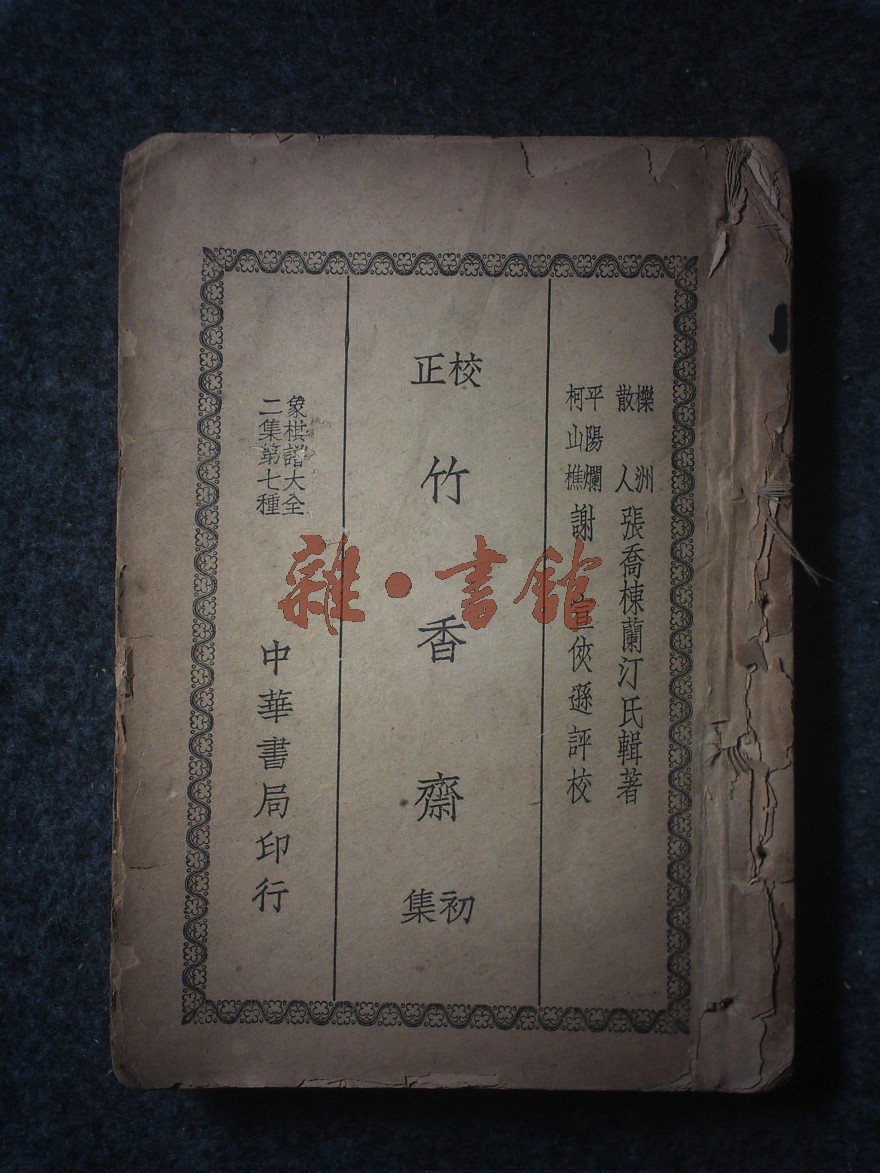 櫟洲散人張喬棟蘭汀氏輯著
平陽爛柯山樵謝宣俠遜評校
校正竹香齋初集
象棋譜大全
二集第七種
中華書局印行
雜·書館